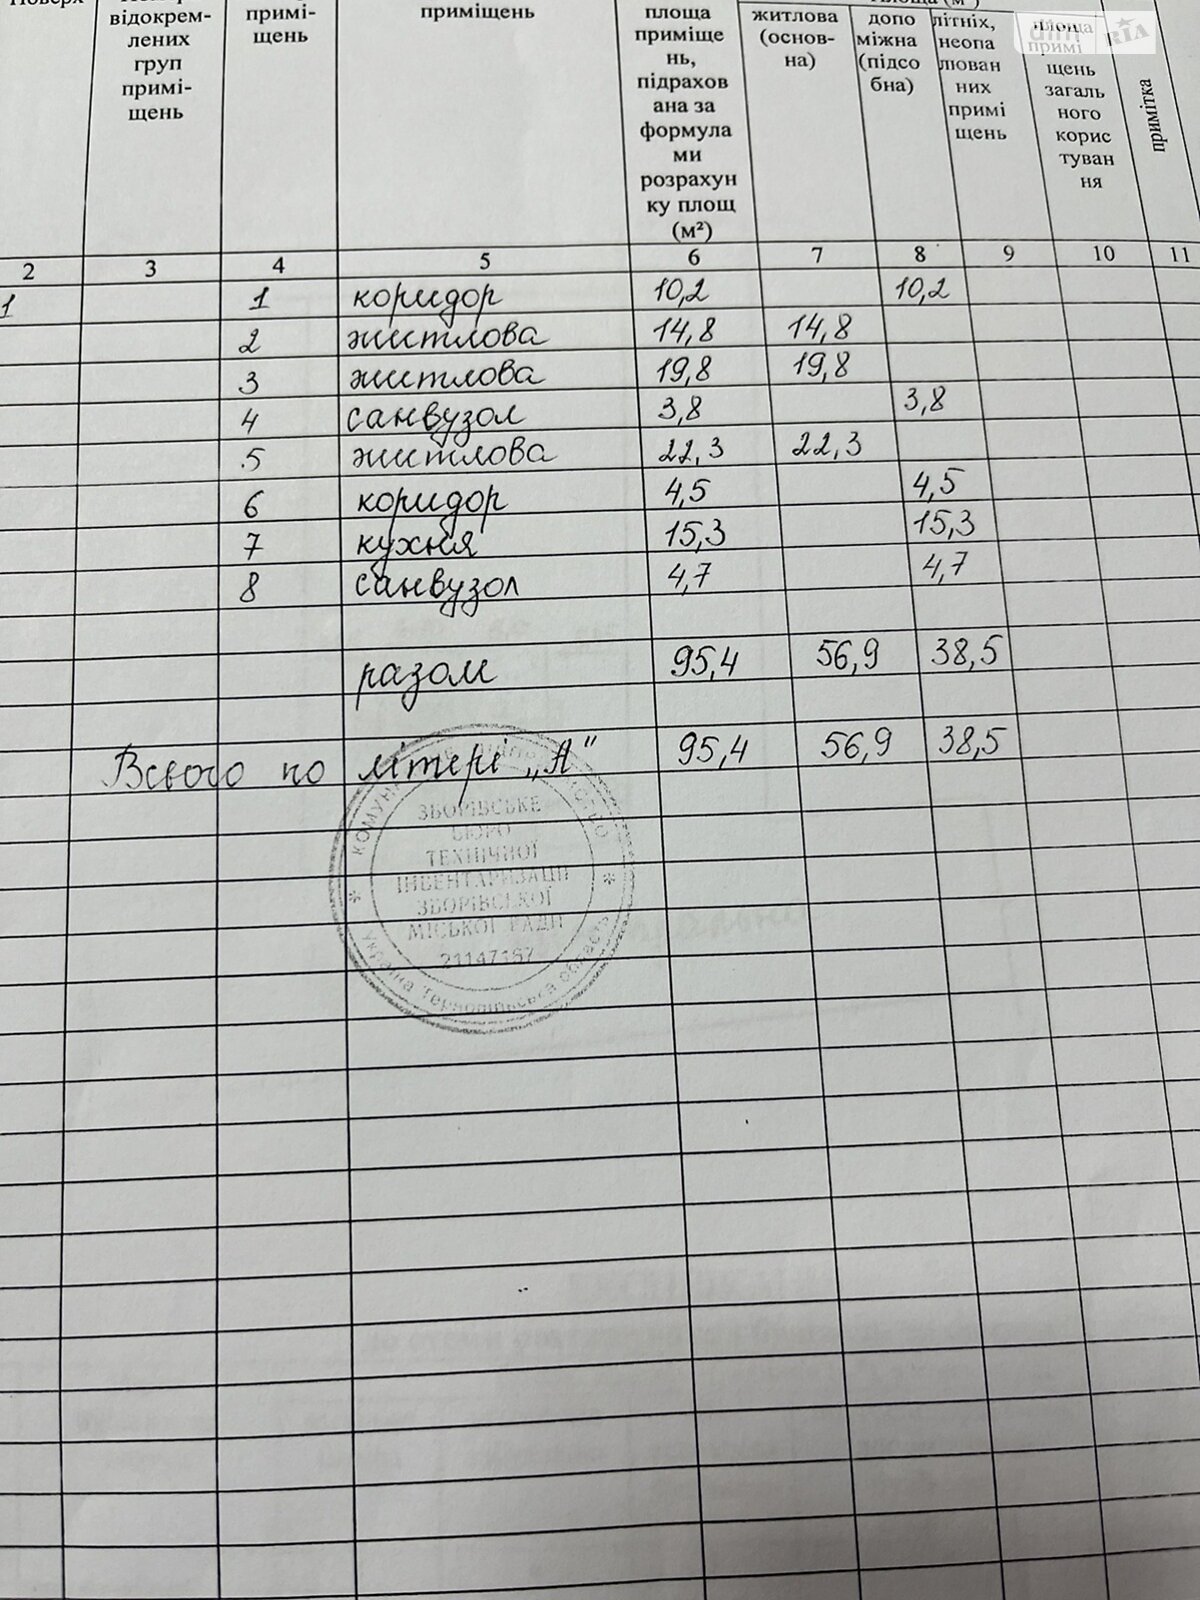 Поверх
відокрем-
лених
груп
примі-
щень
примі-
щень
приміщень
площа
приміще
нь,
підрахов
ана за
формула
ми
розрахун
ку площ
(м²)
житлова
(основ-
на)
допо
міжна
(підсо
бна)
літніх,
неопа
люван
них
примі
щень
площа
примі
щень
загаль
ного
корис
туван
ня
примітка
dim RIA
2 3 4 5 6 7 8 9 10 11
1 1 коридор 10,2 10,2
2 житлова 14,8 14,8
3 житлова 19,8 19,8
4 санвузол 3,8 3,8
5 житлова 22,3 22,3
6 коридор 4,5 4,5
7 кухня 15,3 15,3
8 санвузол 4,7 4,7
разом 95,4 56,9 38,5
Всього по літері „А" 95,4 56,9 38,5
ЗБОРІВСЬКЕ
БЮРО
ТЕХНІЧНОЇ
ІНВЕНТАРИЗАЦІЇ
ЗБОРІВСЬКОЇ
МІСЬКОЇ РАДИ
21147167
Україна Тернопільська область